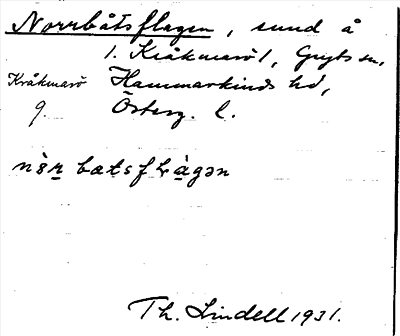 Norrbåtsflagen, sund å
1. Kråkmarö 1, Gryts sn,
Kråkmarö Hammarkinds hd,
9. Österg. l.
nòr batsflàgən
Th. Lindell 1931.